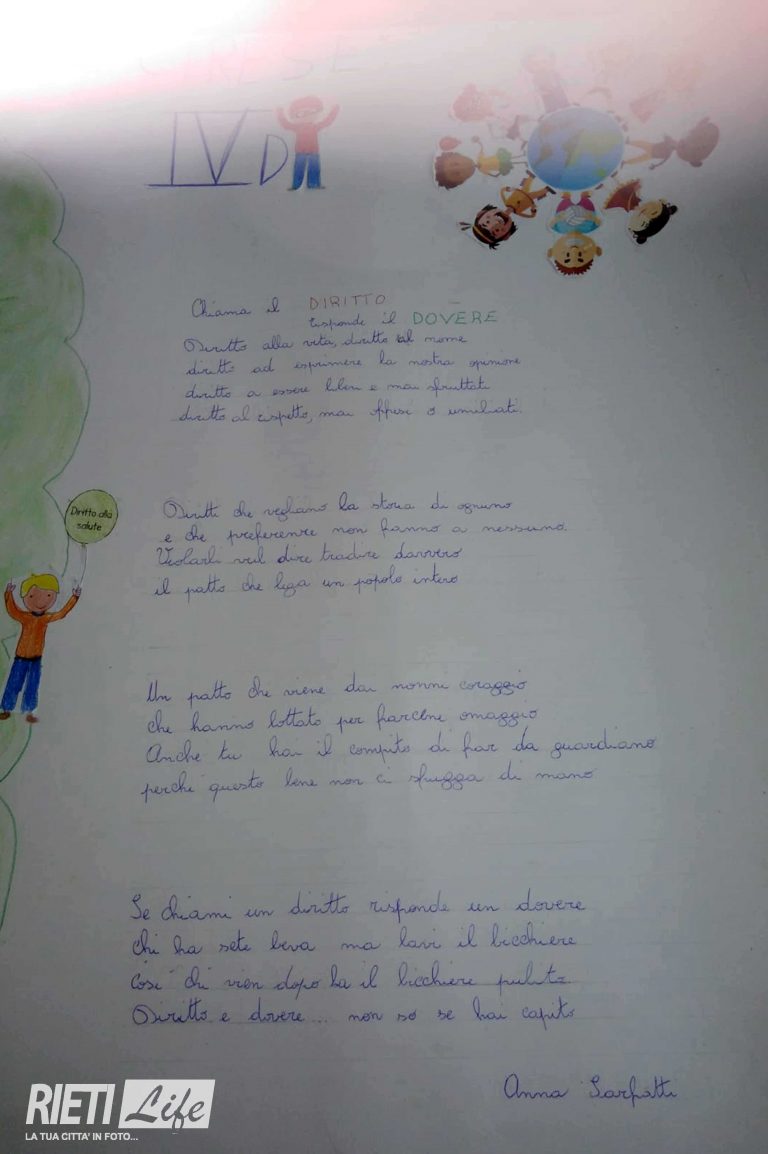 CIRESE
IV D
Chiama il DIRITTO
risponde il DOVERE
Diritto alla vita, diritto al nome
diritto ad esprimere la nostra opinione
diritto a essere liberi e mai sfruttati
diritto al rispetto, mai offesi o umiliati.
Diritti che vegliano la storia di ognuno
e che preferenze non fanno a nessuno.
Violarli vul dire tradire davvero
il patto che lega un popolo intero
Diritto alla
salute
Un patto che viene dai nonni coraggio
che hanno lottato per farcene omaggio
Anche tu hai il compito di far da guardiano
perché questo bene non ci sfugga di mano
Se chiami un diritto risponde un dovere
chi ha sete beva ma lavi il bicchiere
così chi vien dopo ha il bicchiere pulito
Diritto e dovere... non so se hai capito
Anna Sarfatti
RIETI Life
LA TUA CITTA' IN FOTO...